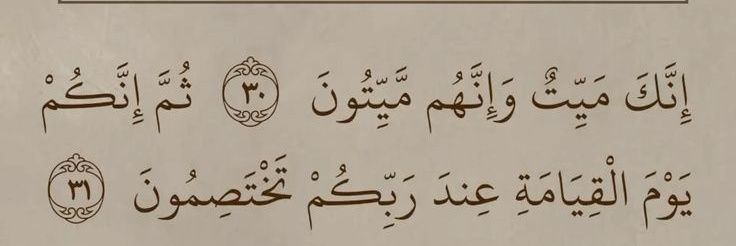 إِنَّكَ مَيِّتٌ وَإِنَّهُم مَّيِّتُونَ ٣٠ ثُمَّ إِنَّكُمْ
يَوْمَ الْقِيَامَةِ عِندَ رَبِّكُمْ تَخْتَصِمُونَ ٣١